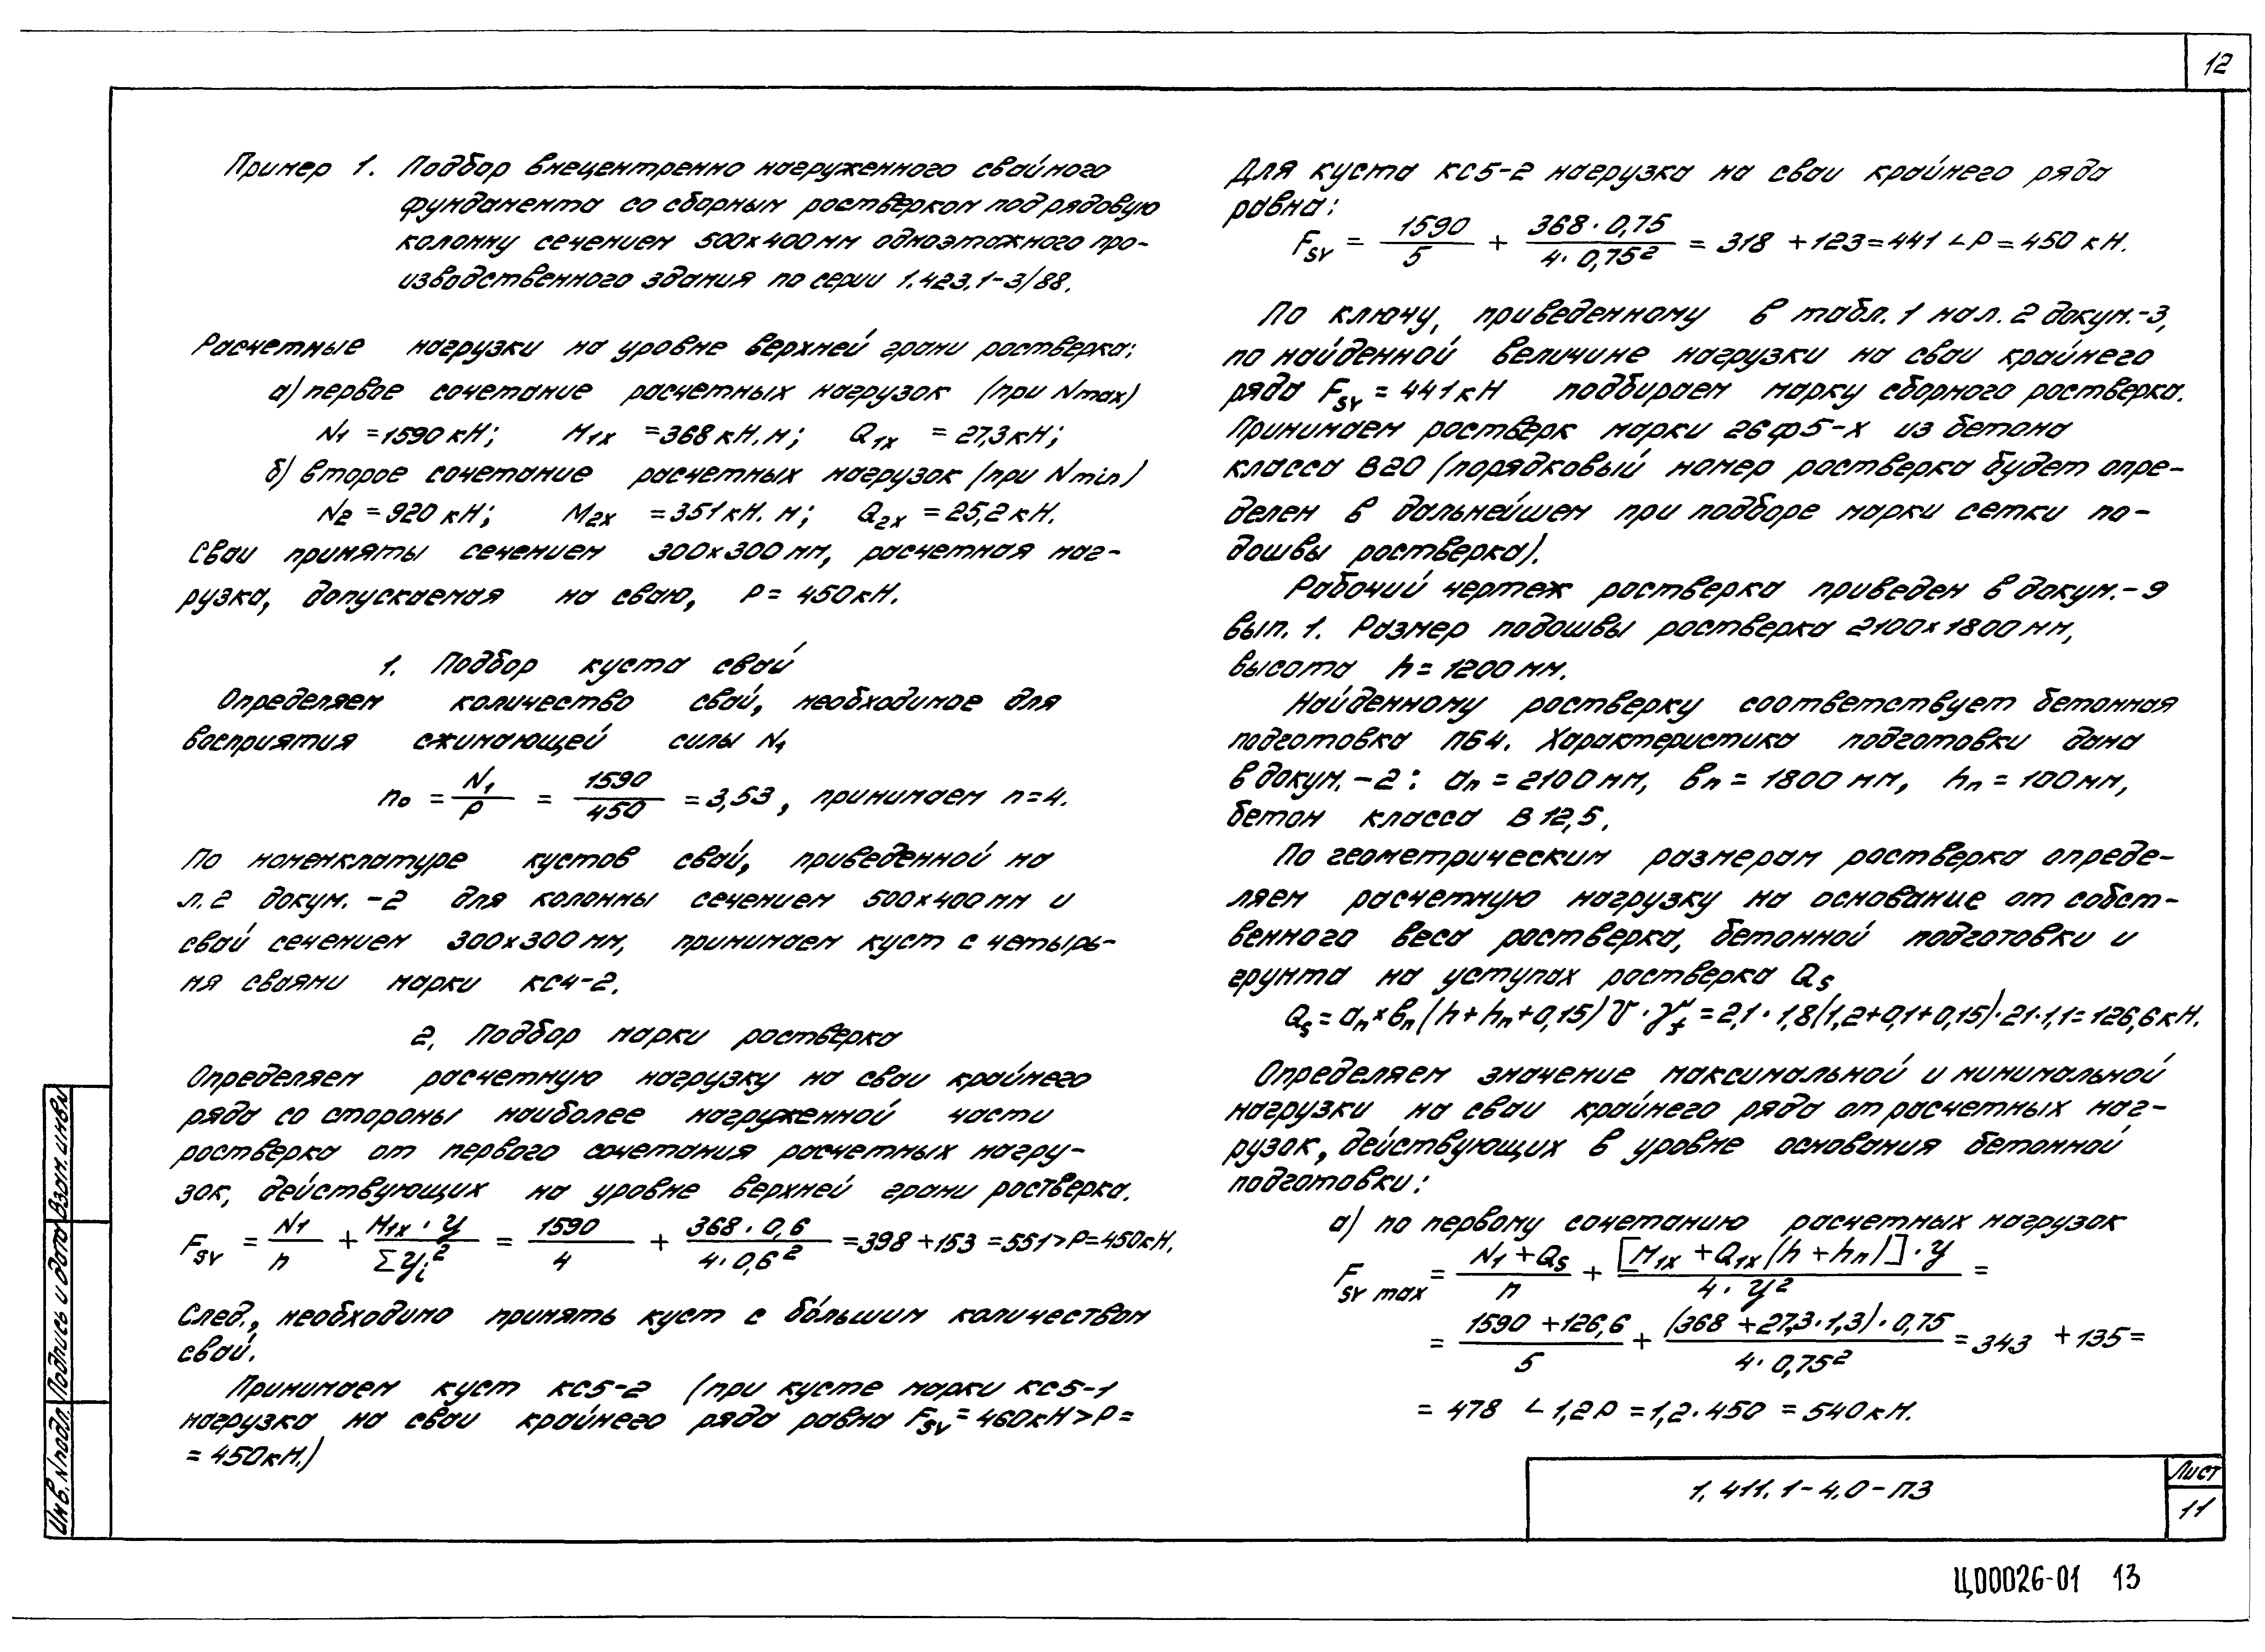 12
Пример 1. Подбор внецентренно нагруженного свайного
фундамента со сборным ростверком под рядовую
колонну сечением 500х400 мм одноэтажного про-
изводственного здания по серии 1.423.1-3/88.
Расчетные нагрузки на уровне верхней грани ростверка:
а) первое сочетание расчетных нагрузок (при Nmax)
N1 = 1590 кН; M1x = 368 кН.м; Q1x = 27,3 кН;
б) второе сочетание расчетных нагрузок (при Nmin)
N2 = 920 кН; M2x = 351 кН.м; Q2x = 25,2 кН.
Сваи приняты сечением 300х300 мм, расчетная наг-
рузка, допускаемая на сваю, P = 450 кН.
1. Подбор куста свай
Определяем количество свай, необходимое для
восприятия сжимающей силы N1
n₀ = N1/P = 1590/450 = 3,53, принимаем n=4.
По номенклатуре кустов свай, приведенной на
л.2 докум. -2 для колонны сечением 500х400 мм и
свай сечением 300х300 мм, принимаем куст с четырь-
мя сваями марки КС4-2.
2. Подбор марки ростверка
Определяем расчетную нагрузку на сваи крайнего
ряда со стороны наиболее нагруженной части
ростверка от первого сочетания расчетных нагру-
зок, действующих на уровне верхней грани ростверка.
Fsv = N1/n + M1x · y/Σyi² = 1590/4 + 368 · 0,6/4 · 0,6² = 398 + 153 = 551 > P = 450 кН.
След., необходимо принять куст с бóльшим количеством
свай.
Принимаем куст КС5-2 (при кусте марки КС5-1
нагрузка на сваи крайнего ряда равна Fsv = 460 кН > P =
= 450 кН.)
Для куста КС5-2 нагрузка на сваи крайнего ряда
равна:
Fsv = 1590/5 + 368 · 0,75/4 · 0,75² = 318 + 123 = 441 < P = 450 кН.
По ключу, приведенному в табл. 1 на л. 2 докум.-3,
по найденной величине нагрузки на сваи крайнего
ряда Fsv = 441 кН подбираем марку сборного ростверка.
Принимаем ростверк марки 2вФ5-х из бетона
класса В20 (порядковый номер ростверка будет опре-
делен в дальнейшем при подборе марки сетки по-
дошвы ростверка).
Рабочий чертеж ростверка приведен в докум.-9
вып. 1. Размер подошвы ростверка 2100х1800 мм,
высота h = 1200 мм.
Найденному ростверку соответствует бетонная
подготовка ПБ4. Характеристика подготовки дана
в докум. -2: aп = 2100 мм, вп = 1800 мм, hп = 100 мм,
бетон класса В 12,5.
По геометрическим размерам ростверка опреде-
ляем расчетную нагрузку на основание от собст-
венного веса ростверка, бетонной подготовки и
грунта на уступах ростверка Qs
Qs = aп × вп (h + hп + 0,15) γ̄ · γf = 2,1 · 1,8 (1,2+0,1+0,15) · 21 · 1,1 = 126,6 кН.
Определяем значение максимальной и минимальной
нагрузки на сваи крайнего ряда от расчетных наг-
рузок, действующих в уровне основания бетонной
подготовки:
а) по первому сочетанию расчетных нагрузок
Fsv max = N1 + Qs/n + [M1x + Q1x (h + hп)] · y/4 · y² =
= 1590 + 126,6/5 + (368 + 27,3 · 1,3) · 0,75/4 · 0,75² = 343 + 135 =
= 478 < 1,2 P = 1,2 · 450 = 540 кН.
Инв. N подл. Подпись и дата Взам. инв. N
1.411.1-4.0-ПЗ
Лист
11
Ц00026-01 13